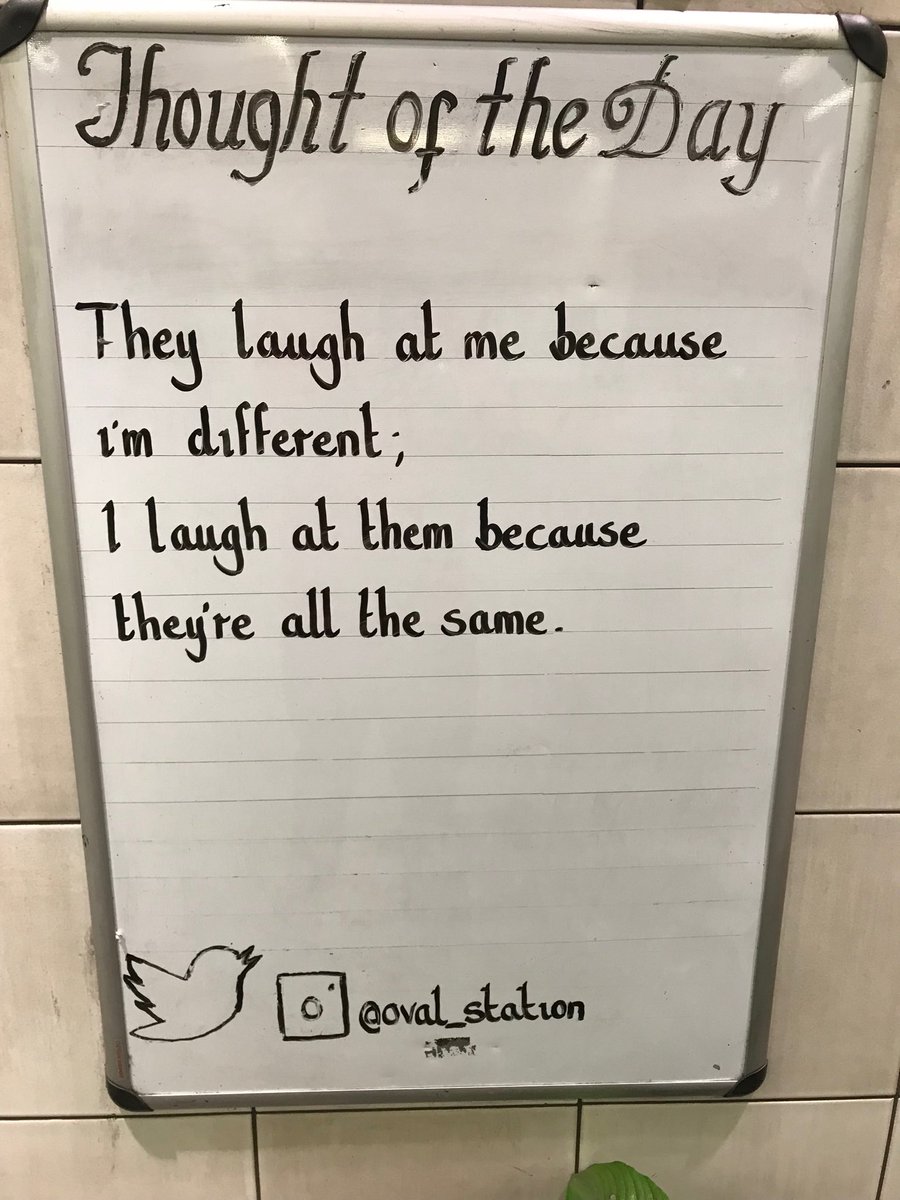 Thought of the Day
They laugh at me because
i'm different;
I laugh at them because
they're all the same.
@oval_station